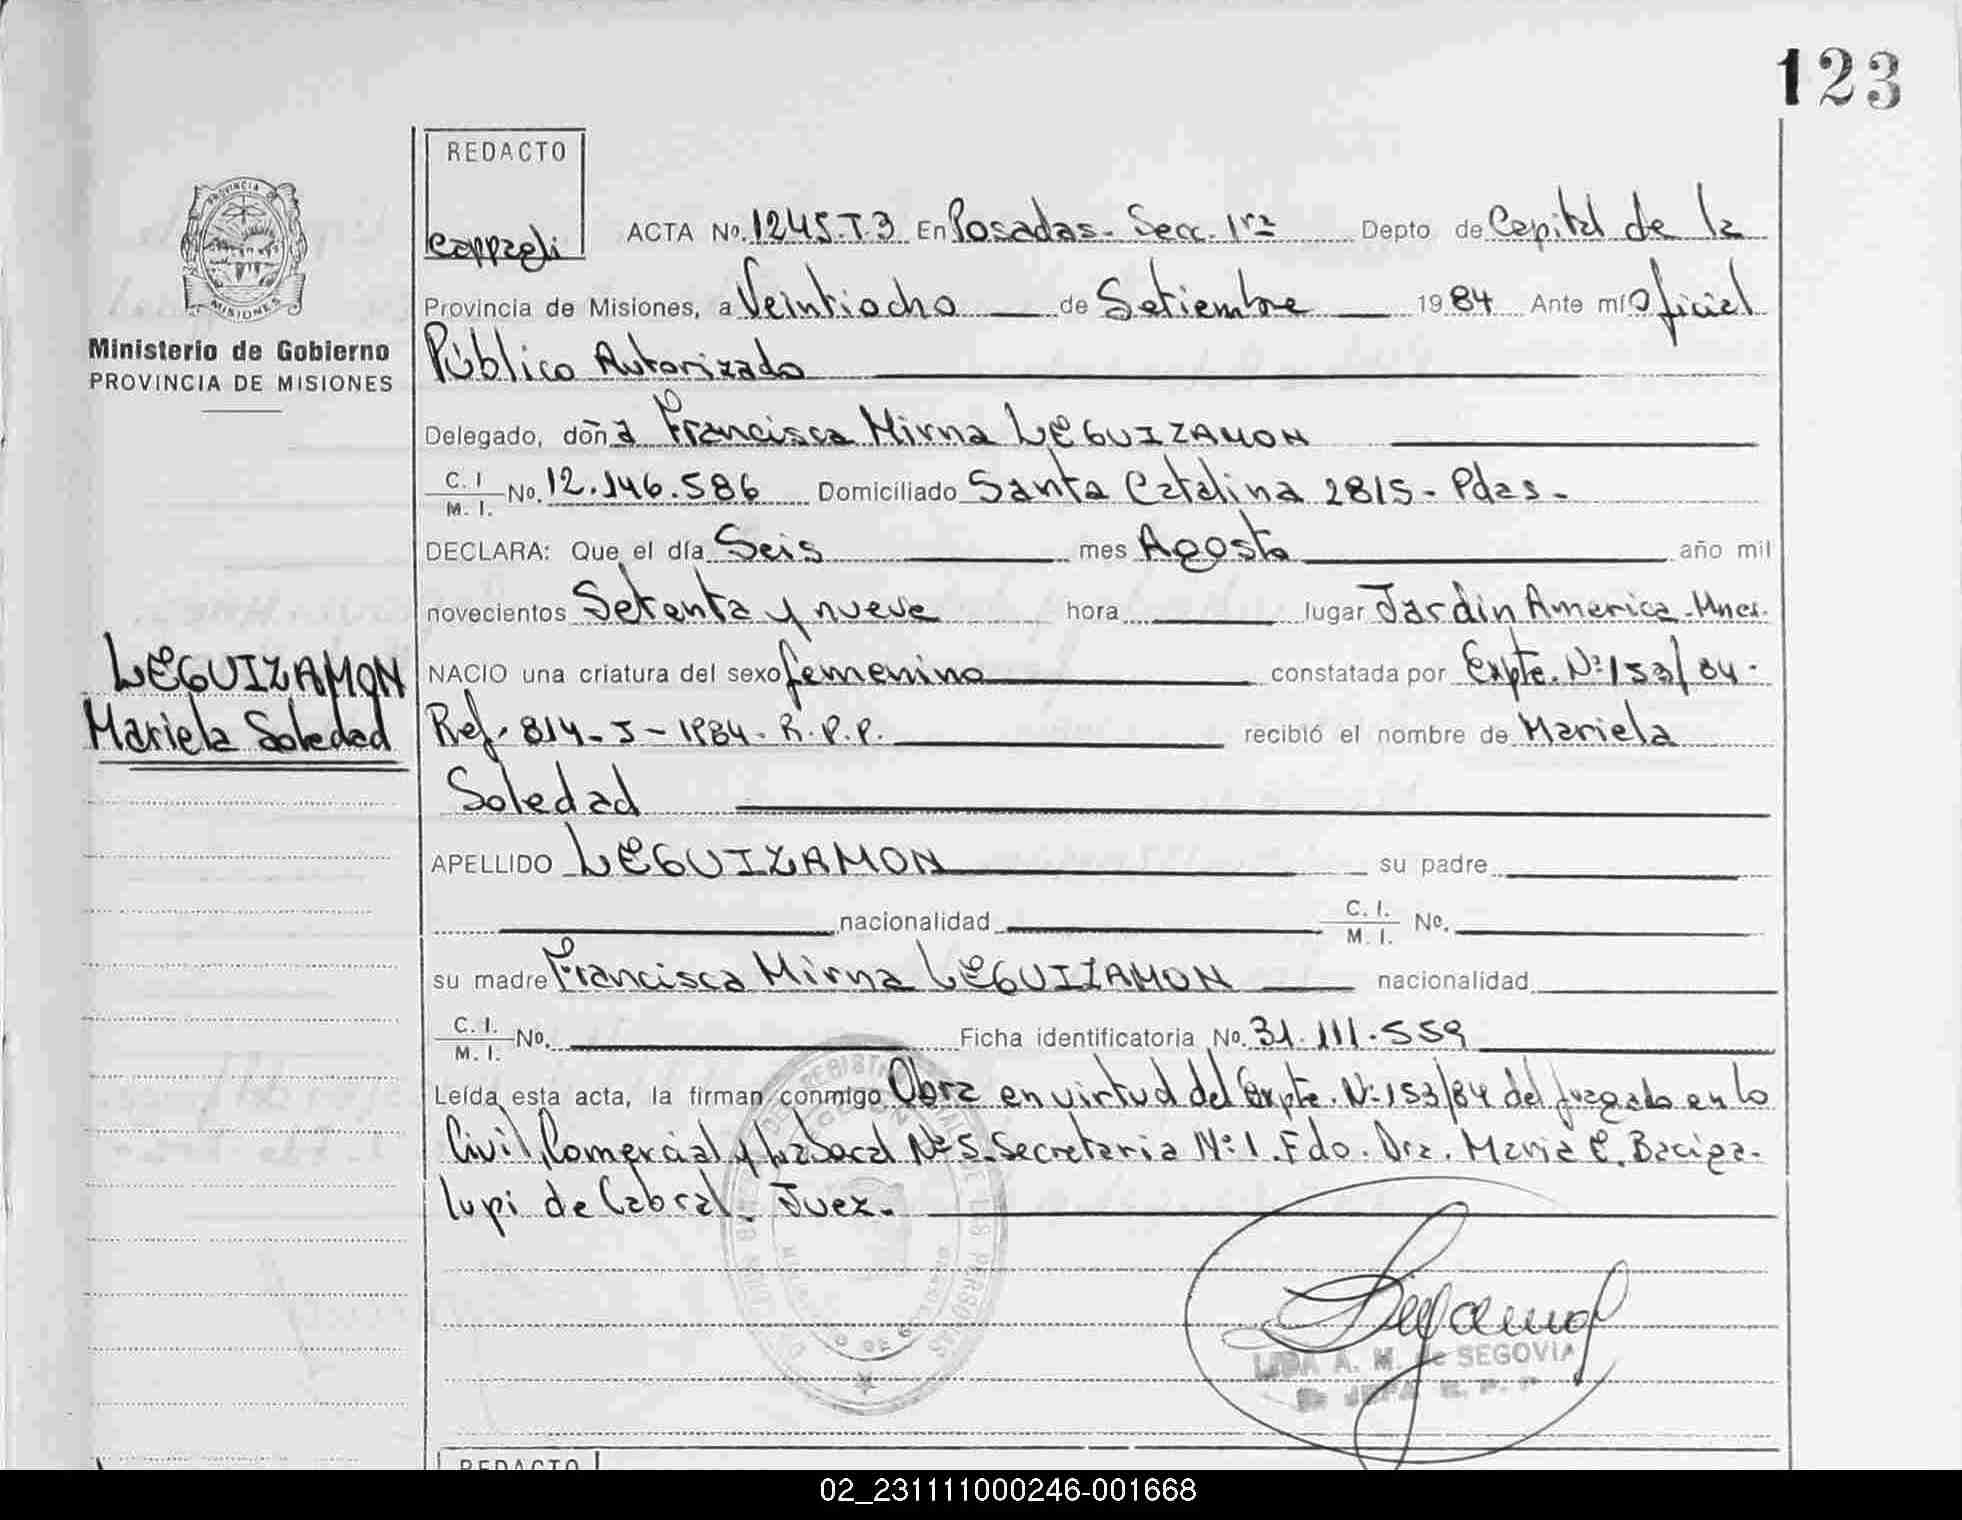 123
REDACTO
Cappagli
ACTA No. 1245.T.3 En Posadas - Secc. 1ra Depto de Capital de la
PROVINCIA DE
MISIONES
Provincia de Misiones, a Veintiocho de Setiembre 1984 Ante mí Oficial
Ministerio de Gobierno
PROVINCIA DE MISIONES
Público Autorizado
Delegado, doña Francisca Mirna LEGUIZAMON
C. I. M. I. No. 12.146.586 Domiciliado Santa Catalina 2815 - Pdas -
DECLARA: Que el día Seis mes Agosto año mil
novecientos Setenta y nueve hora lugar Jardin America - Mnes.
LEGUIZAMON
Mariela Soledad
NACIO una criatura del sexo femenino constatada por Expte. Nº 153/84 -
Ref. 814 - J - 1984 - R.P.P. recibió el nombre de Mariela
Soledad
APELLIDO LEGUIZAMON su padre
nacionalidad C. I. M. I. No.
su madre Francisca Mirna LEGUIZAMON nacionalidad
C. I. M. I. No. Ficha identificatoria No. 31.111.559
Leída esta acta, la firman conmigo Obra en virtud del Expte. Nº 153/84 del Juzgado en lo
Civil, Comercial y Laboral Nº 5 - Secretaria Nº 1. Fdo. Dra. Maria C. Baciga-
lupi de Cabral - Juez.
A. M. de SEGOVIA
JEFA R. P. P.
REDACTO
02_231111000246-001668